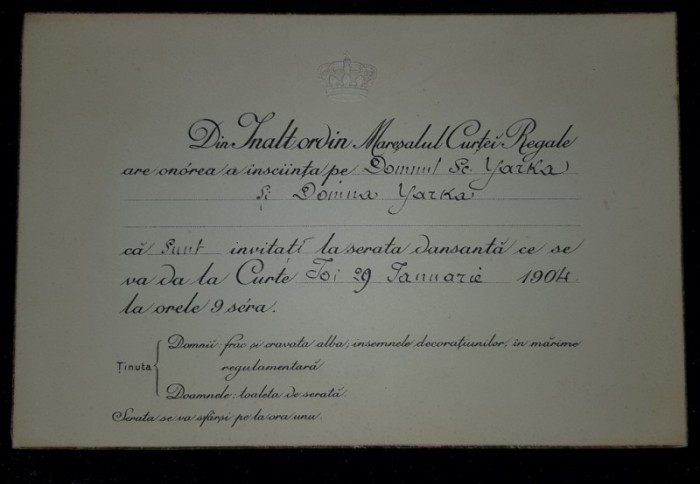 Din Inalt ordin Mareșalul Curței Regale
are onórea a însciința pe Domnul Sc. Yarka
și Domna Yarka
că sunt invitati la serata dansantă ce se
va da la Curte Joi 29 Ianuarie 1904
la orele 9 séra.
Ținuta
Domnii: frac și cravata alba, insemnele decorațiunilor, in mărime
regulamentară
Doamnele: toaleta de serată.
Serata se va sfârși pe la ora unu.